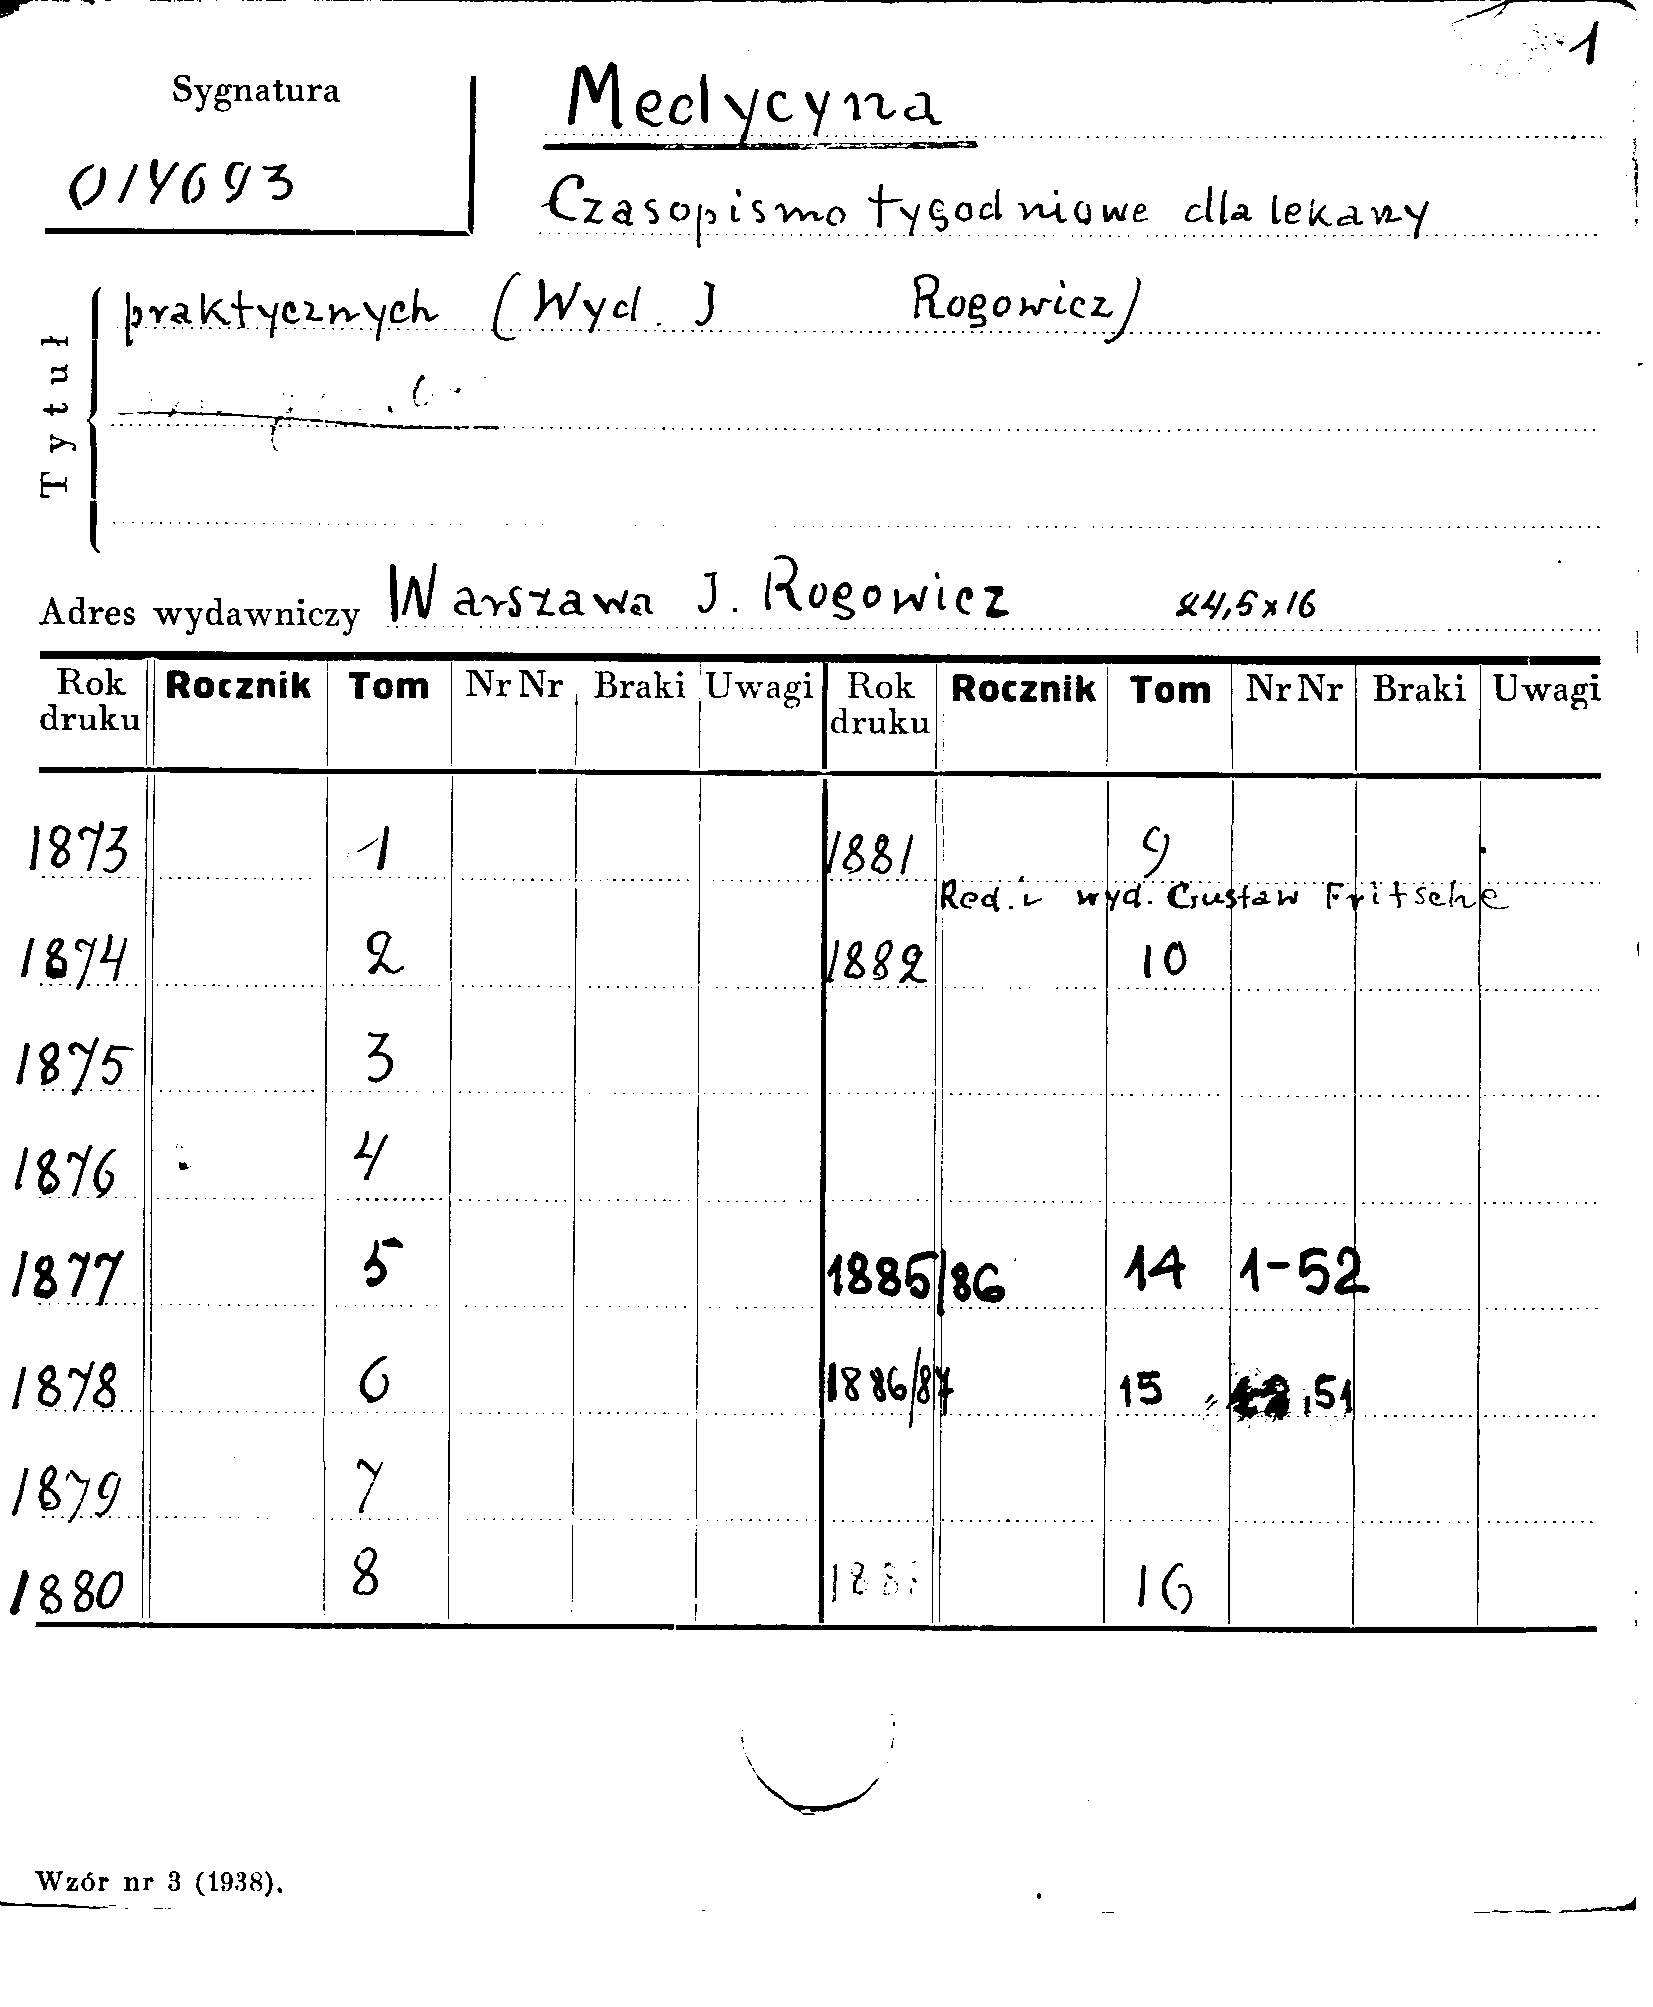 1
Sygnatura
014693
Medycyna
Czasopismo tygodniowe dla lekarzy
praktycznych (Wyd. J Rogowicz)
Tytuł
Adres wydawniczy Warszawa J. Rogowicz 24,5x16
Rok druku Rocznik Tom Nr Nr Braki Uwagi Rok druku Rocznik Tom Nr Nr Braki Uwagi
1873 1 1881 9
Red. i wyd. Gustaw Fritsche
1874 2 1882 10
1875 3
1876 4
1877 5 1885/86 14 1-52
1878 6 1886/87 15 51
1879 7
1880 8 16
Wzór nr 3 (1938).